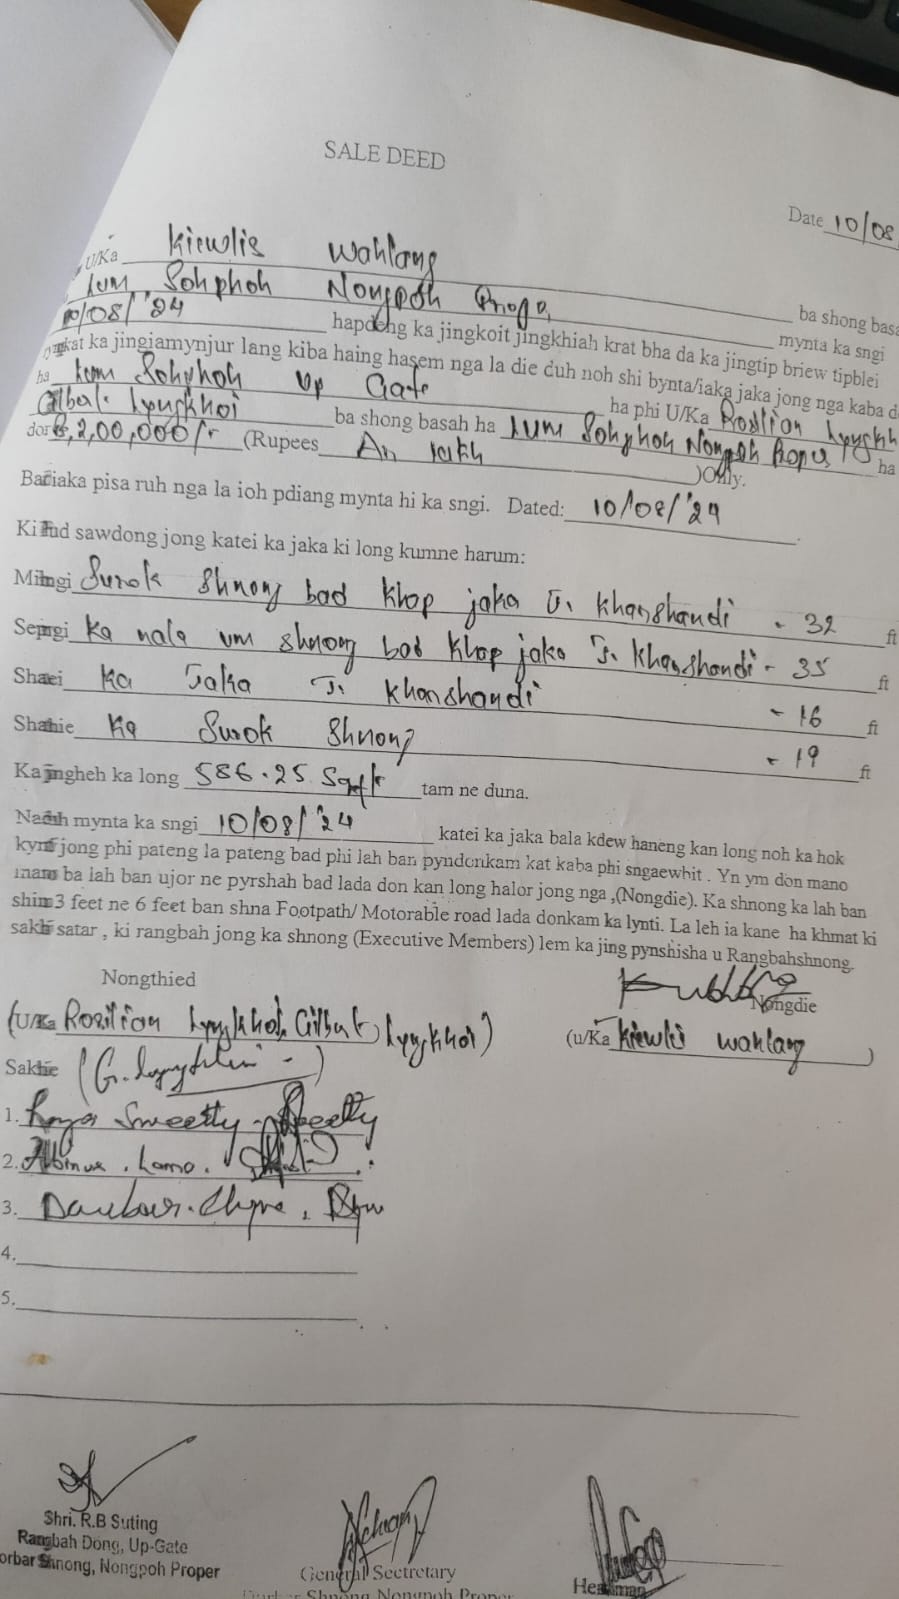 SALE DEED
Date 10/08
U/Ka Kiewlis Wahlang
Lum Sohphoh Nongpoh Proper ba shong bas
10/08/'24 hapdeng ka jingkoit jingkhiah krat bha da ka jingtip briew tipblei mynta ka sngi
kat ka jingiamynjur lang kiba haing hasem nga la die duh noh shi bynta/iaka jaka jong nga kaba d
ha Lum Sohphoh Up Gate ha phi U/Ka Rosilion Lyngkh
Gilbat Lyngkhoi ba shong basah ha Lum Sohphoh Nongpoh Proper ha
dor 2,00,000/- (Rupees Ar lakh )Only.
Bad iaka pisa ruh nga la ioh pdiang mynta hi ka sngi. Dated: 10/08/'24
Ki iud sawdong jong katei ka jaka ki long kumne harum:
Mihngi Surok Shnong bad Khop jaka J. Khanshandi - 32 ft
Sepngi Ka nala um shnong bad Khop jaka J. Khanshandi - 35 ft
Shatei Ka Jaka J. Khanshandi - 16 ft
Shathie Ka Surok Shnong - 19 ft
Ka jingheh ka long 586.25 Sqft tam ne duna.
Naduh mynta ka sngi 10/08/'24 katei ka jaka bala kdew haneng kan long noh ka hok
jong phi pateng la pateng bad phi lah ban pyndonkam kat kaba phi sngaewbit . Yn ym don mano
mano ba lah ban ujor ne pyrshah bad lada don kan long halor jong nga ,(Nongdie). Ka shnong ka lah ban
shim 3 feet ne 6 feet ban shna Footpath/ Motorable road lada donkam ka lynti. La leh ia kane ha khmat ki
sakhi satar , ki rangbah jong ka shnong (Executive Members) lem ka jing pynshisha u Rangbahshnong.
Nongthied
Nongdie
(U/Ka Rosilion Lyngkhoi, Gilbat Lyngkhoi)
(u/Ka Kiewlis Wahlang )
Sakhie
1. Sweetty
2. Albinus . Lamo .
3.
4.
5.
Shri. R.B Suting
Rangbah Dong, Up-Gate
orbar Shnong, Nongpoh Proper
General Secretary
Shnong Nongpoh Proper
Headman